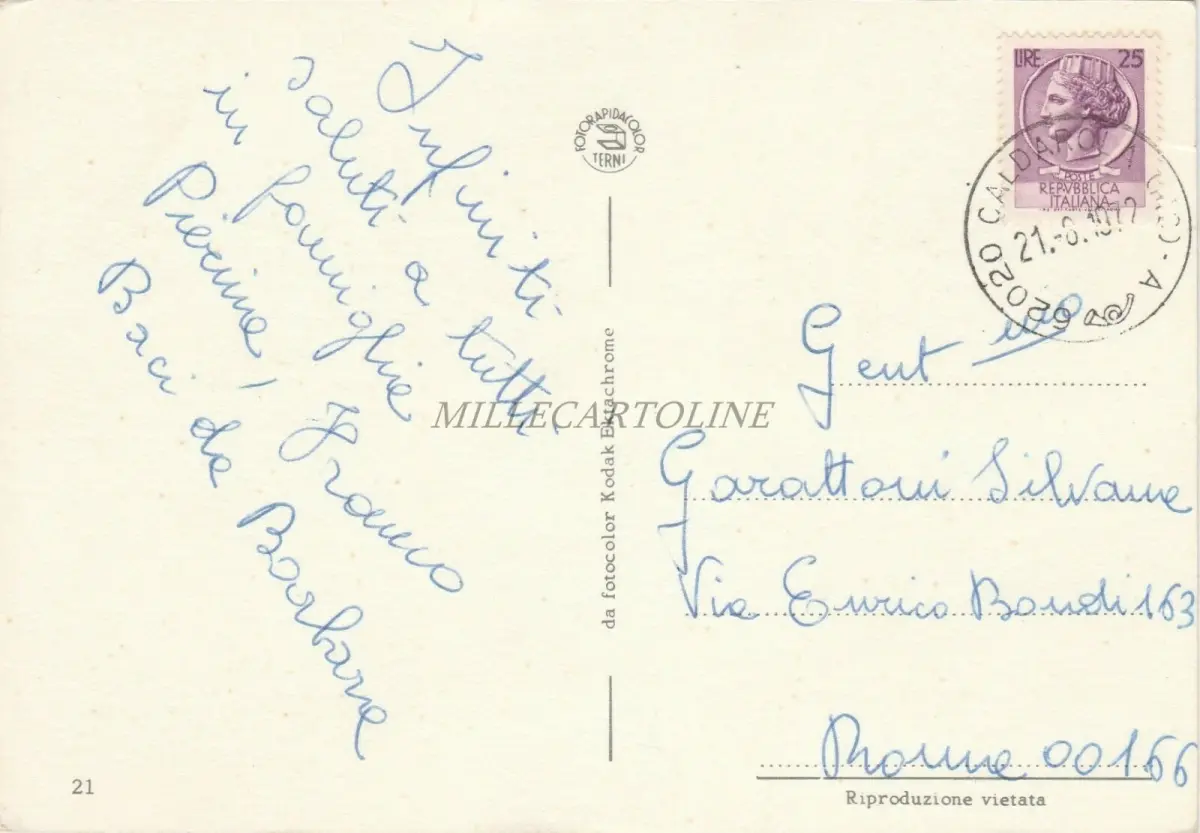 Infiniti
saluti a tutti
in famiglia
Pierina, Franco
Baci da Barbara
21
FOTORAPIDACOLOR
TERNI
da fotocolor Kodak Ektachrome
MILLECARTOLINE
LIRE 25
POSTE
REPVBBLICA
ITALIANA
62020 CALDAROLA (MC) - A
21.-8.1972
Gent
Garattoni Silvana
Via Enrico Bondi 163
Roma 00166
Riproduzione vietata